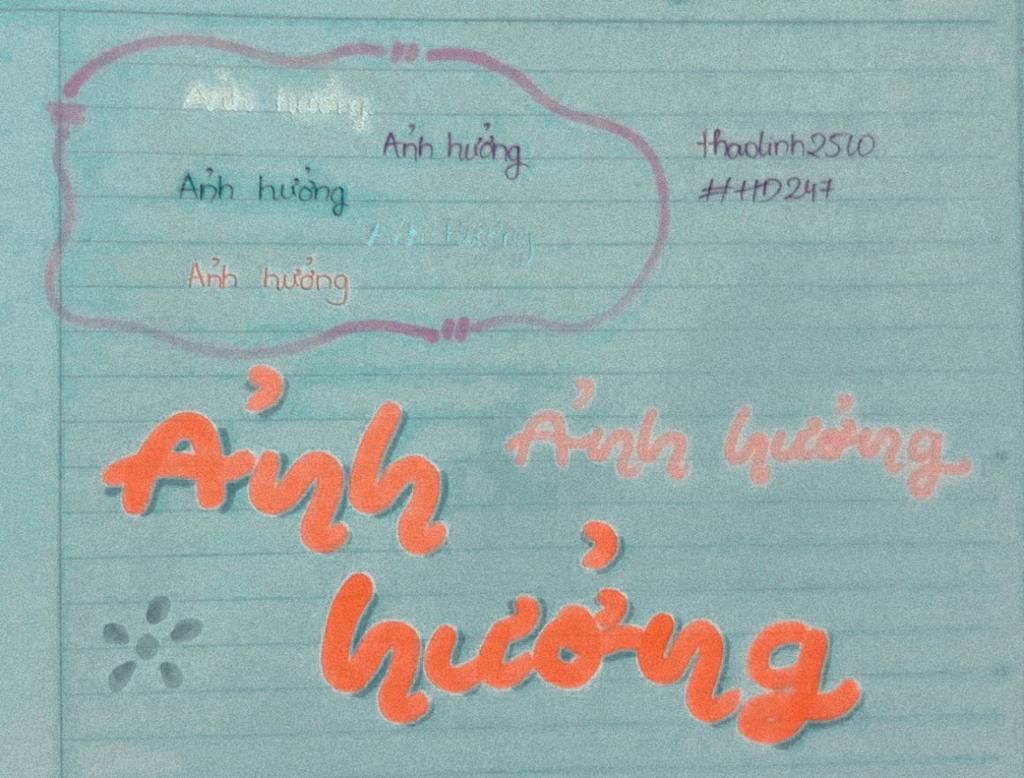 Ảnh hưởng
Ảnh hưởng
Ảnh hưởng
Ảnh hưởng
Ảnh hưởng
thaolinh2510
#HD247
Ảnh hưởng
Ảnh
hưởng